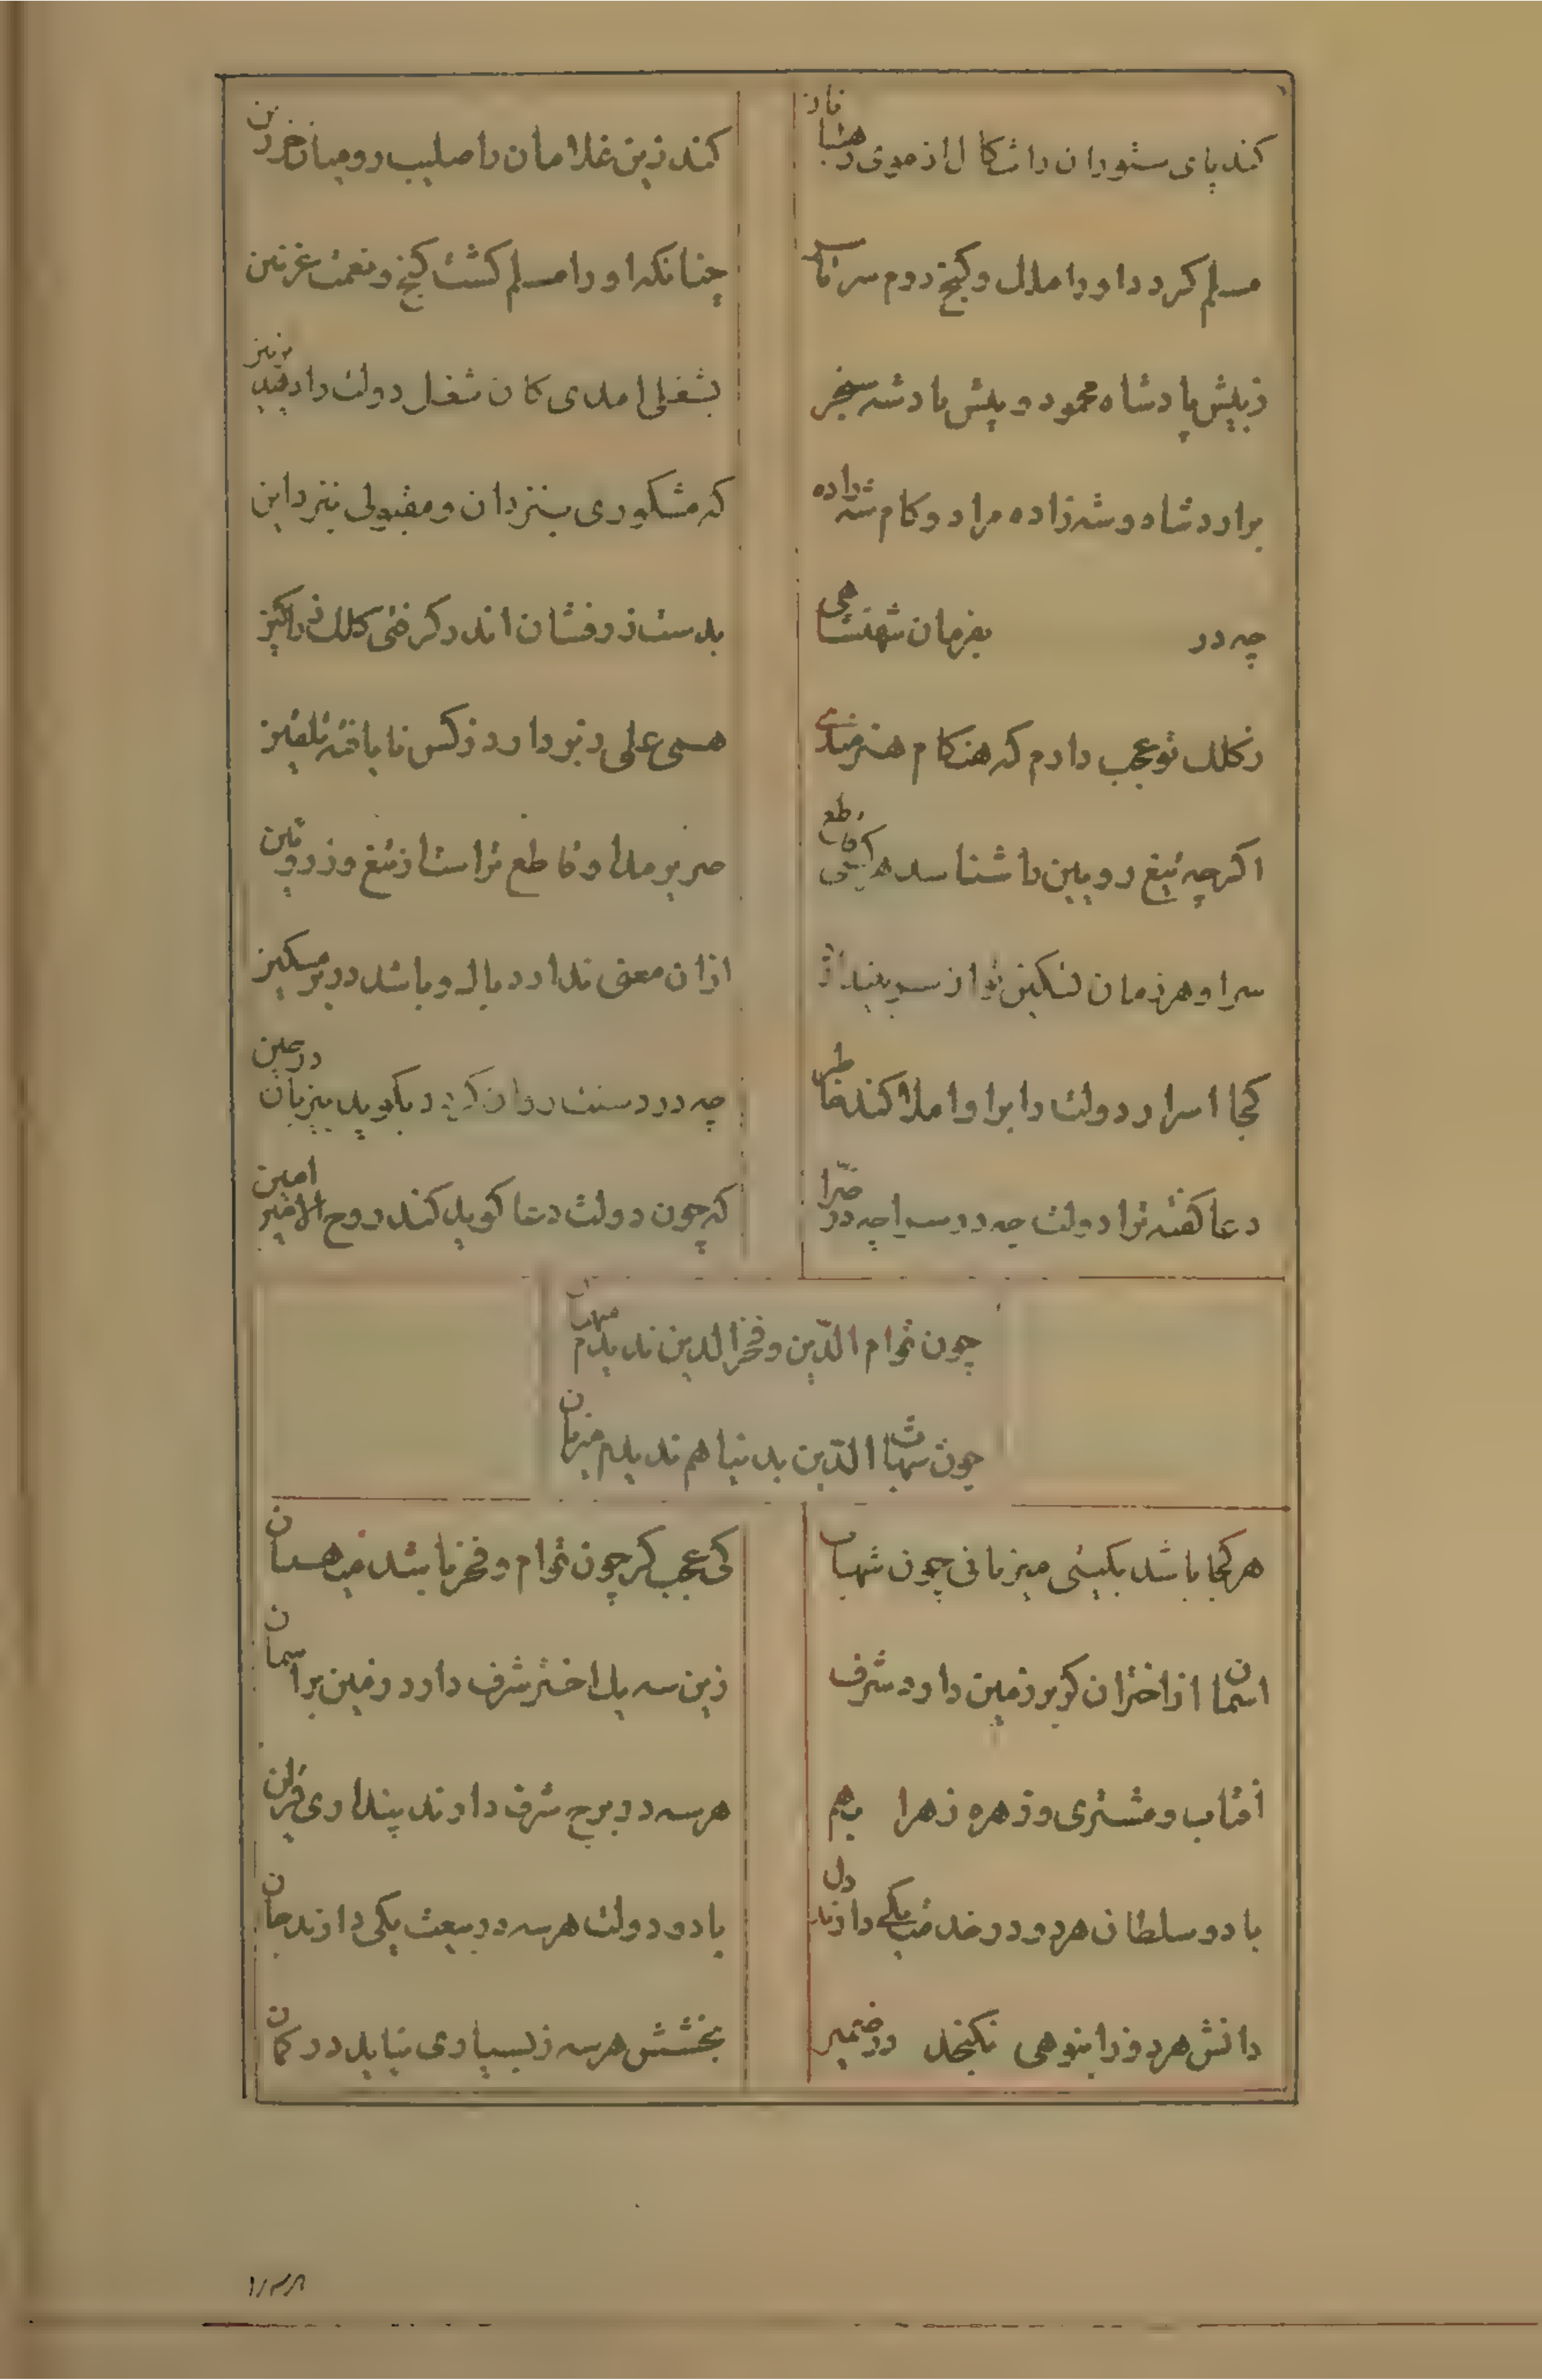 کند پای ستوران را شکال از موی رهبانان
کند زین غلامان را صلیب رومیان خرزین
مسلم کرد داور را ملال و گنج روم سرتاسر
چنانکه او را مسلم گشت گنج و نعمت غزنین
ز پیش پادشاه محمود و پیش پادشه سنجر
بشغلی امدی کان شغل دولت را دهد
برارد شاه و شه زاده مراد و کام شه زاده
که مشکوری بنزد ان و مقبولی بنزد این
چه در بفرمان شهنشاهی
بدست زرفشان اندر گرفتی کلک
ز کلک تو عجب دارم که هنگام هنرمندی
همی علی دبو دارد ز کس نا یافته تلقین
اگرچه تیغ رویین را شناسد هر کسی قاطع
صریر مدا و قاطع تر است از تیغ وز رویین
سر او هر زمان
ازان معنی ندارد یال و باشد در بر مسکین
کجا اسرار دولت را برا و املا کند خاطر
چه در دستت روان گردد بگوید بیزبان در حین
دعا گفته ترا دولت چه در سرا چه در ضرا
که چون دولت دعا گوید کند روح الامین امین
چون قوام الدین و فخر الدین ندیدم میهمان
چون شهاب الدین بدنیا هم ندیدم میزبان
هر کجا باشد بگیتی میزبانی چون شهاب
کی عجب گر چون قوام و فخر باشد میهمان
اسمان از اختران گر بر زمین دارد شرف
زین سه یل اختر شرف دارد زمین بر اسمان
افتاب و مشتری و زهره زهرا بهم
هر سه در برج شرف دارند پنداری قران
با دو سلطان هر دو در خدمت یکی دارند دل
با دو دولت هر سه در بیعت یکی دارند جان
دانش هر دو ز انبوهی نگنجد در ضمیر
بخشش هر سه ز بسیاری نیاید در گمان